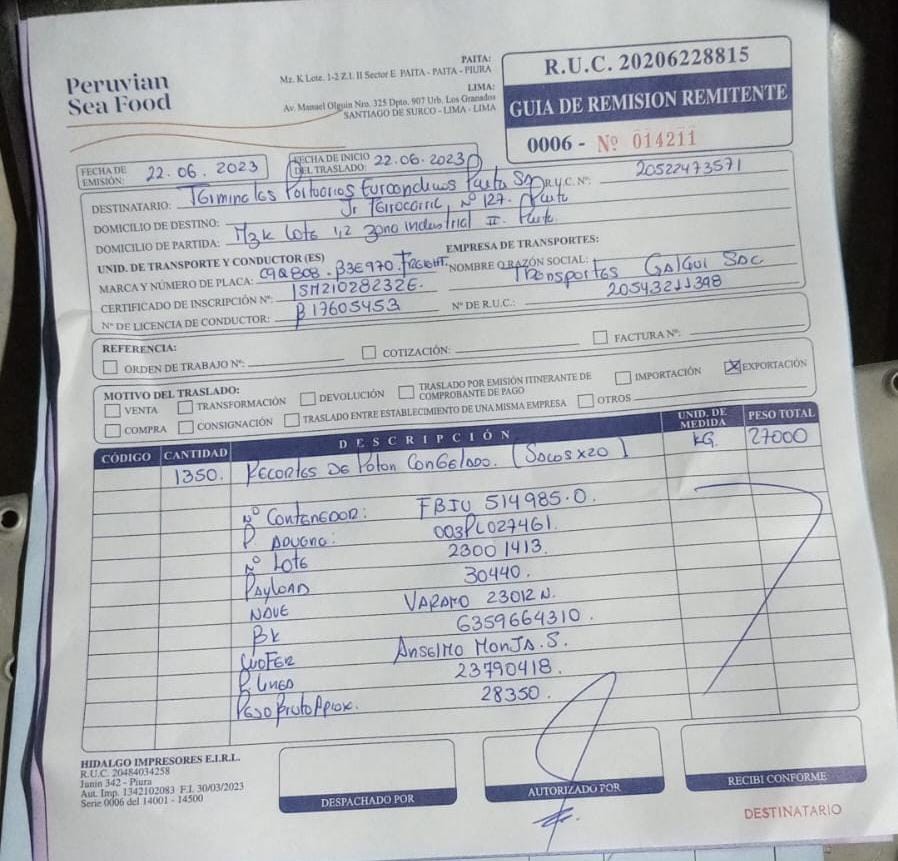 Peruvian
Sea Food
PAITA:
Mz. K Lote. 1-2 Z.I. II Sector E PAITA - PAITA - PIURA
LIMA:
Av. Manuel Olguin Nro. 325 Dpto. 907 Urb. Los Granados
SANTIAGO DE SURCO - LIMA - LIMA
R.U.C. 20206228815
GUIA DE REMISION REMITENTE
0006 - Nº 014211
FECHA DE EMISIÓN: 22.06.2023
FECHA DE INICIO DEL TRASLADO: 22.06.2023
DESTINATARIO: Terminales Portuarios Euroandinos Paita Sa R.U.C. Nº: 20522473571
DOMICILIO DE DESTINO: Jr Ferrocarril, Nº 127. Paita
DOMICILIO DE PARTIDA: Mzk Lote 1,2 zona industrial II. Paita.
UNID. DE TRANSPORTE Y CONDUCTOR (ES)
EMPRESA DE TRANSPORTES:
MARCA Y NÚMERO DE PLACA: C9Q808 - B3E970. FREIGHT.
NOMBRE O RAZÓN SOCIAL: Transportes GalGui Sac
CERTIFICADO DE INSCRIPCIÓN Nº: 15M21028232E.
Nº DE LICENCIA DE CONDUCTOR: B17605453
Nº DE R.U.C.: 20543211398
REFERENCIA:
ORDEN DE TRABAJO Nº:
COTIZACIÓN:
FACTURA Nº:
MOTIVO DEL TRASLADO:
VENTA
TRANSFORMACIÓN
DEVOLUCIÓN
TRASLADO POR EMISIÓN ITINERANTE DE COMPROBANTE DE PAGO
IMPORTACIÓN
X EXPORTACIÓN
COMPRA
CONSIGNACIÓN
TRASLADO ENTRE ESTABLECIMIENTO DE UNA MISMA EMPRESA
OTROS
CÓDIGO CANTIDAD DESCRIPCIÓN UNID. DE MEDIDA PESO TOTAL
1350. Recortes De Poton Congelado. (Sacos x20) KG. 27000
Nº Contenedor: FBIU 514985-0.
P. Aduana: 003PL027461.
Nº Lote 23001413.
Payload 30440.
Nave VARAMO 23012 N.
Bk 6359664310.
Chofer Anselmo Monja. S.
P. Linea 23790418.
Peso Bruto Aprox. 28350.
HIDALGO IMPRESORES E.I.R.L.
R.U.C. 20484034258
Junin 342 - Piura
Aut. Imp. 1342102083 F.I. 30/03/2023
Serie 0006 del 14001 - 14500
DESPACHADO POR
AUTORIZADO POR
RECIBI CONFORME
DESTINATARIO